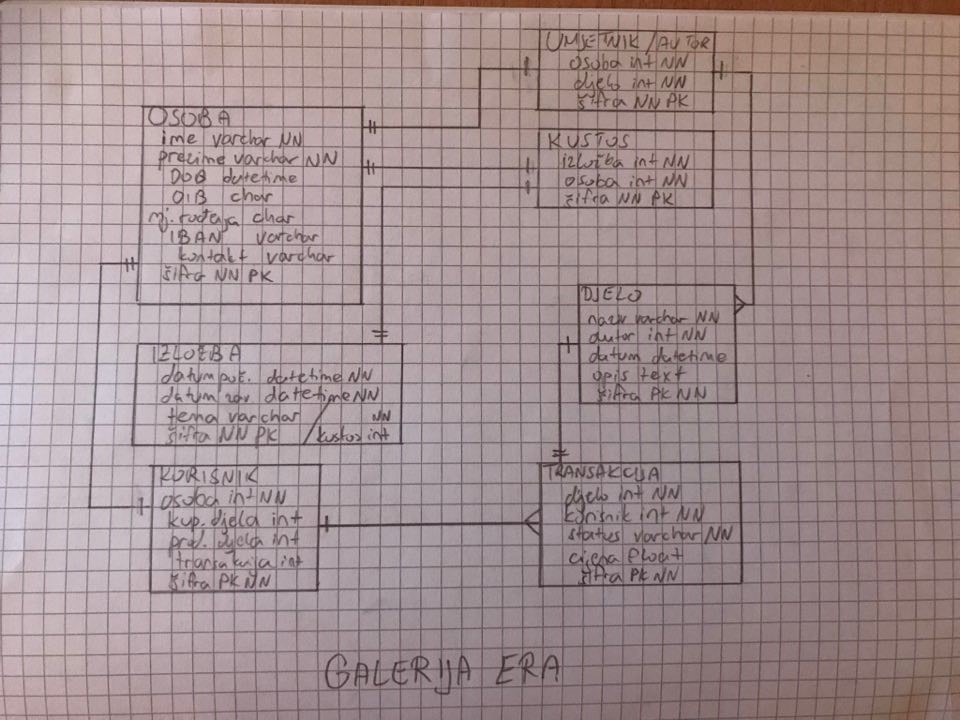 UMJETNIK/AUTOR
osoba int NN
djelo int NN
šifra NN PK
OSOBA
ime varchar NN
prezime varchar NN
DOB datetime
OIB char
mj. rođenja char
IBAN varchar
kontakt varchar
šifra NN PK
KUSTOS
izložba int NN
osoba int NN
šifra NN PK
DJELO
naziv varchar NN
autor int NN
datum datetime
opis text
šifra PK NN
IZLOŽBA
datum poč. datetime NN
datum zav. datetime NN
tema varchar
šifra NN PK / kustos int NN
KORISNIK
osoba int NN
kup. djela int
prod. djela int
transakcija int
šifra PK NN
TRANSAKCIJA
djelo int NN
korisnik int NN
status varchar NN
cijena float
šifra PK NN
GALERIJA ERA